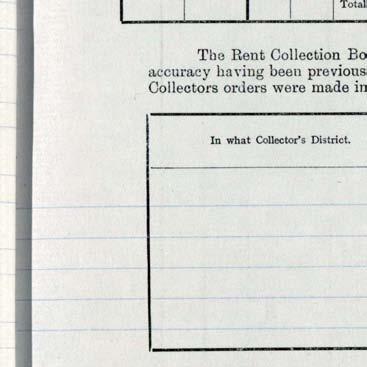 Total
The Rent Collection Bo
accuracy having been previous
Collectors orders were made in
In what Collector's District.